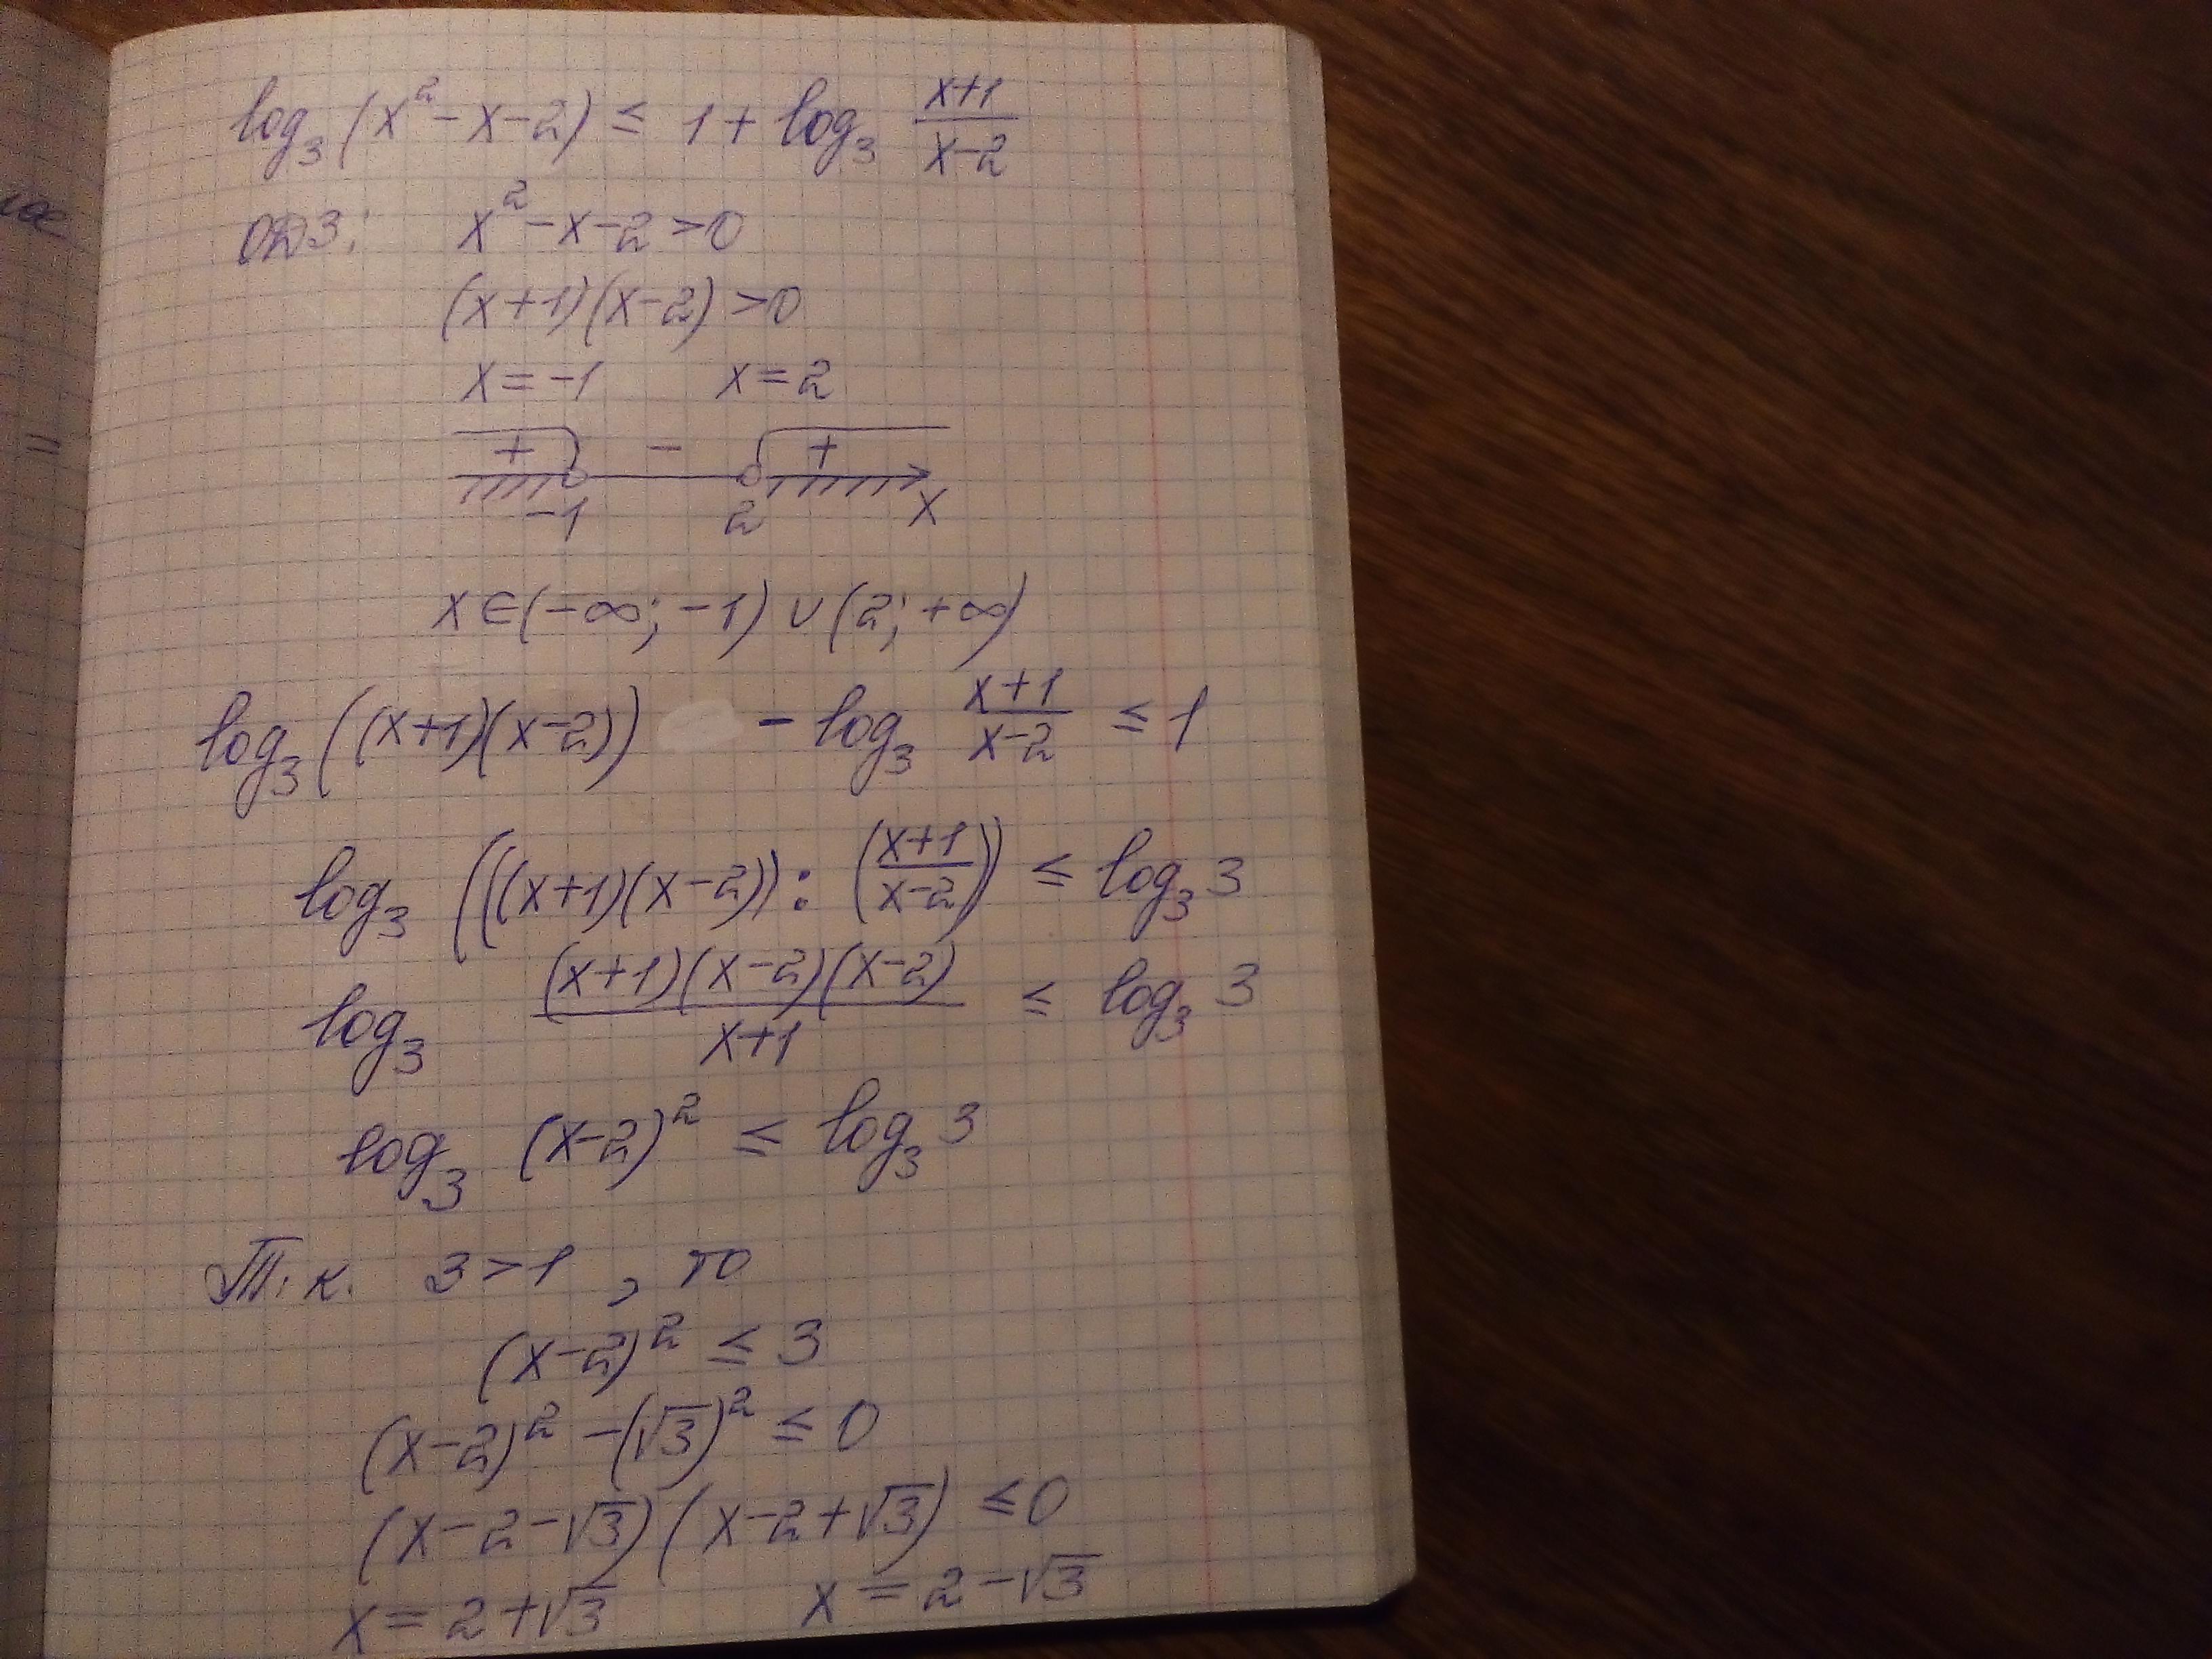 log₃(x²-x-2) ≤ 1 + log₃ (x+1)/(x-2)
ОДЗ: x²-x-2>0
(x+1)(x-2)>0
x=-1 x=2
+ - +
-1 2 x
x∈(-∞;-1)∪(2;+∞)
log₃((x+1)(x-2)) - log₃ (x+1)/(x-2) ≤ 1
log₃(((x+1)(x-2)):((x+1)/(x-2))) ≤ log₃3
log₃ (x+1)(x-2)(x-2)/(x+1) ≤ log₃3
log₃ (x-2)² ≤ log₃3
Т.к. 3>1, то
(x-2)² ≤ 3
(x-2)² -(√3)² ≤ 0
(x-2-√3)(x-2+√3) ≤0
x=2+√3 x=2-√3
=